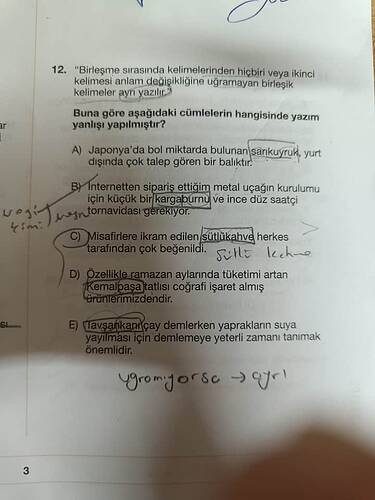 12. "Birleşme sırasında kelimelerinden hiçbiri veya ikinci
kelimesi anlam değişikliğine uğramayan birleşik
kelimeler ayrı yazılır."
Buna göre aşağıdaki cümlelerin hangisinde yazım
yanlışı yapılmıştır?
A) Japonya'da bol miktarda bulunan sarıkuyruk, yurt
dışında çok talep gören bir balıktır.
B) İnternetten sipariş ettiğim metal uçağın kurulumu
için küçük bir kargaburnu ve ince düz saatçi
tornavidası gerekiyor.
C) Misafirlere ikram edilen sütlükahve herkes
tarafından çok beğenildi.
sütlü kahve
D) Özellikle ramazan aylarında tüketimi artan
Kemalpaşa tatlısı coğrafi işaret almış
ürünlerimizdendir.
E) Tavşankanı çay demlerken yaprakların suya
yayılması için demlemeye yeterli zamanı tanımak
önemlidir.
uğramıyorsa → ayrı
3